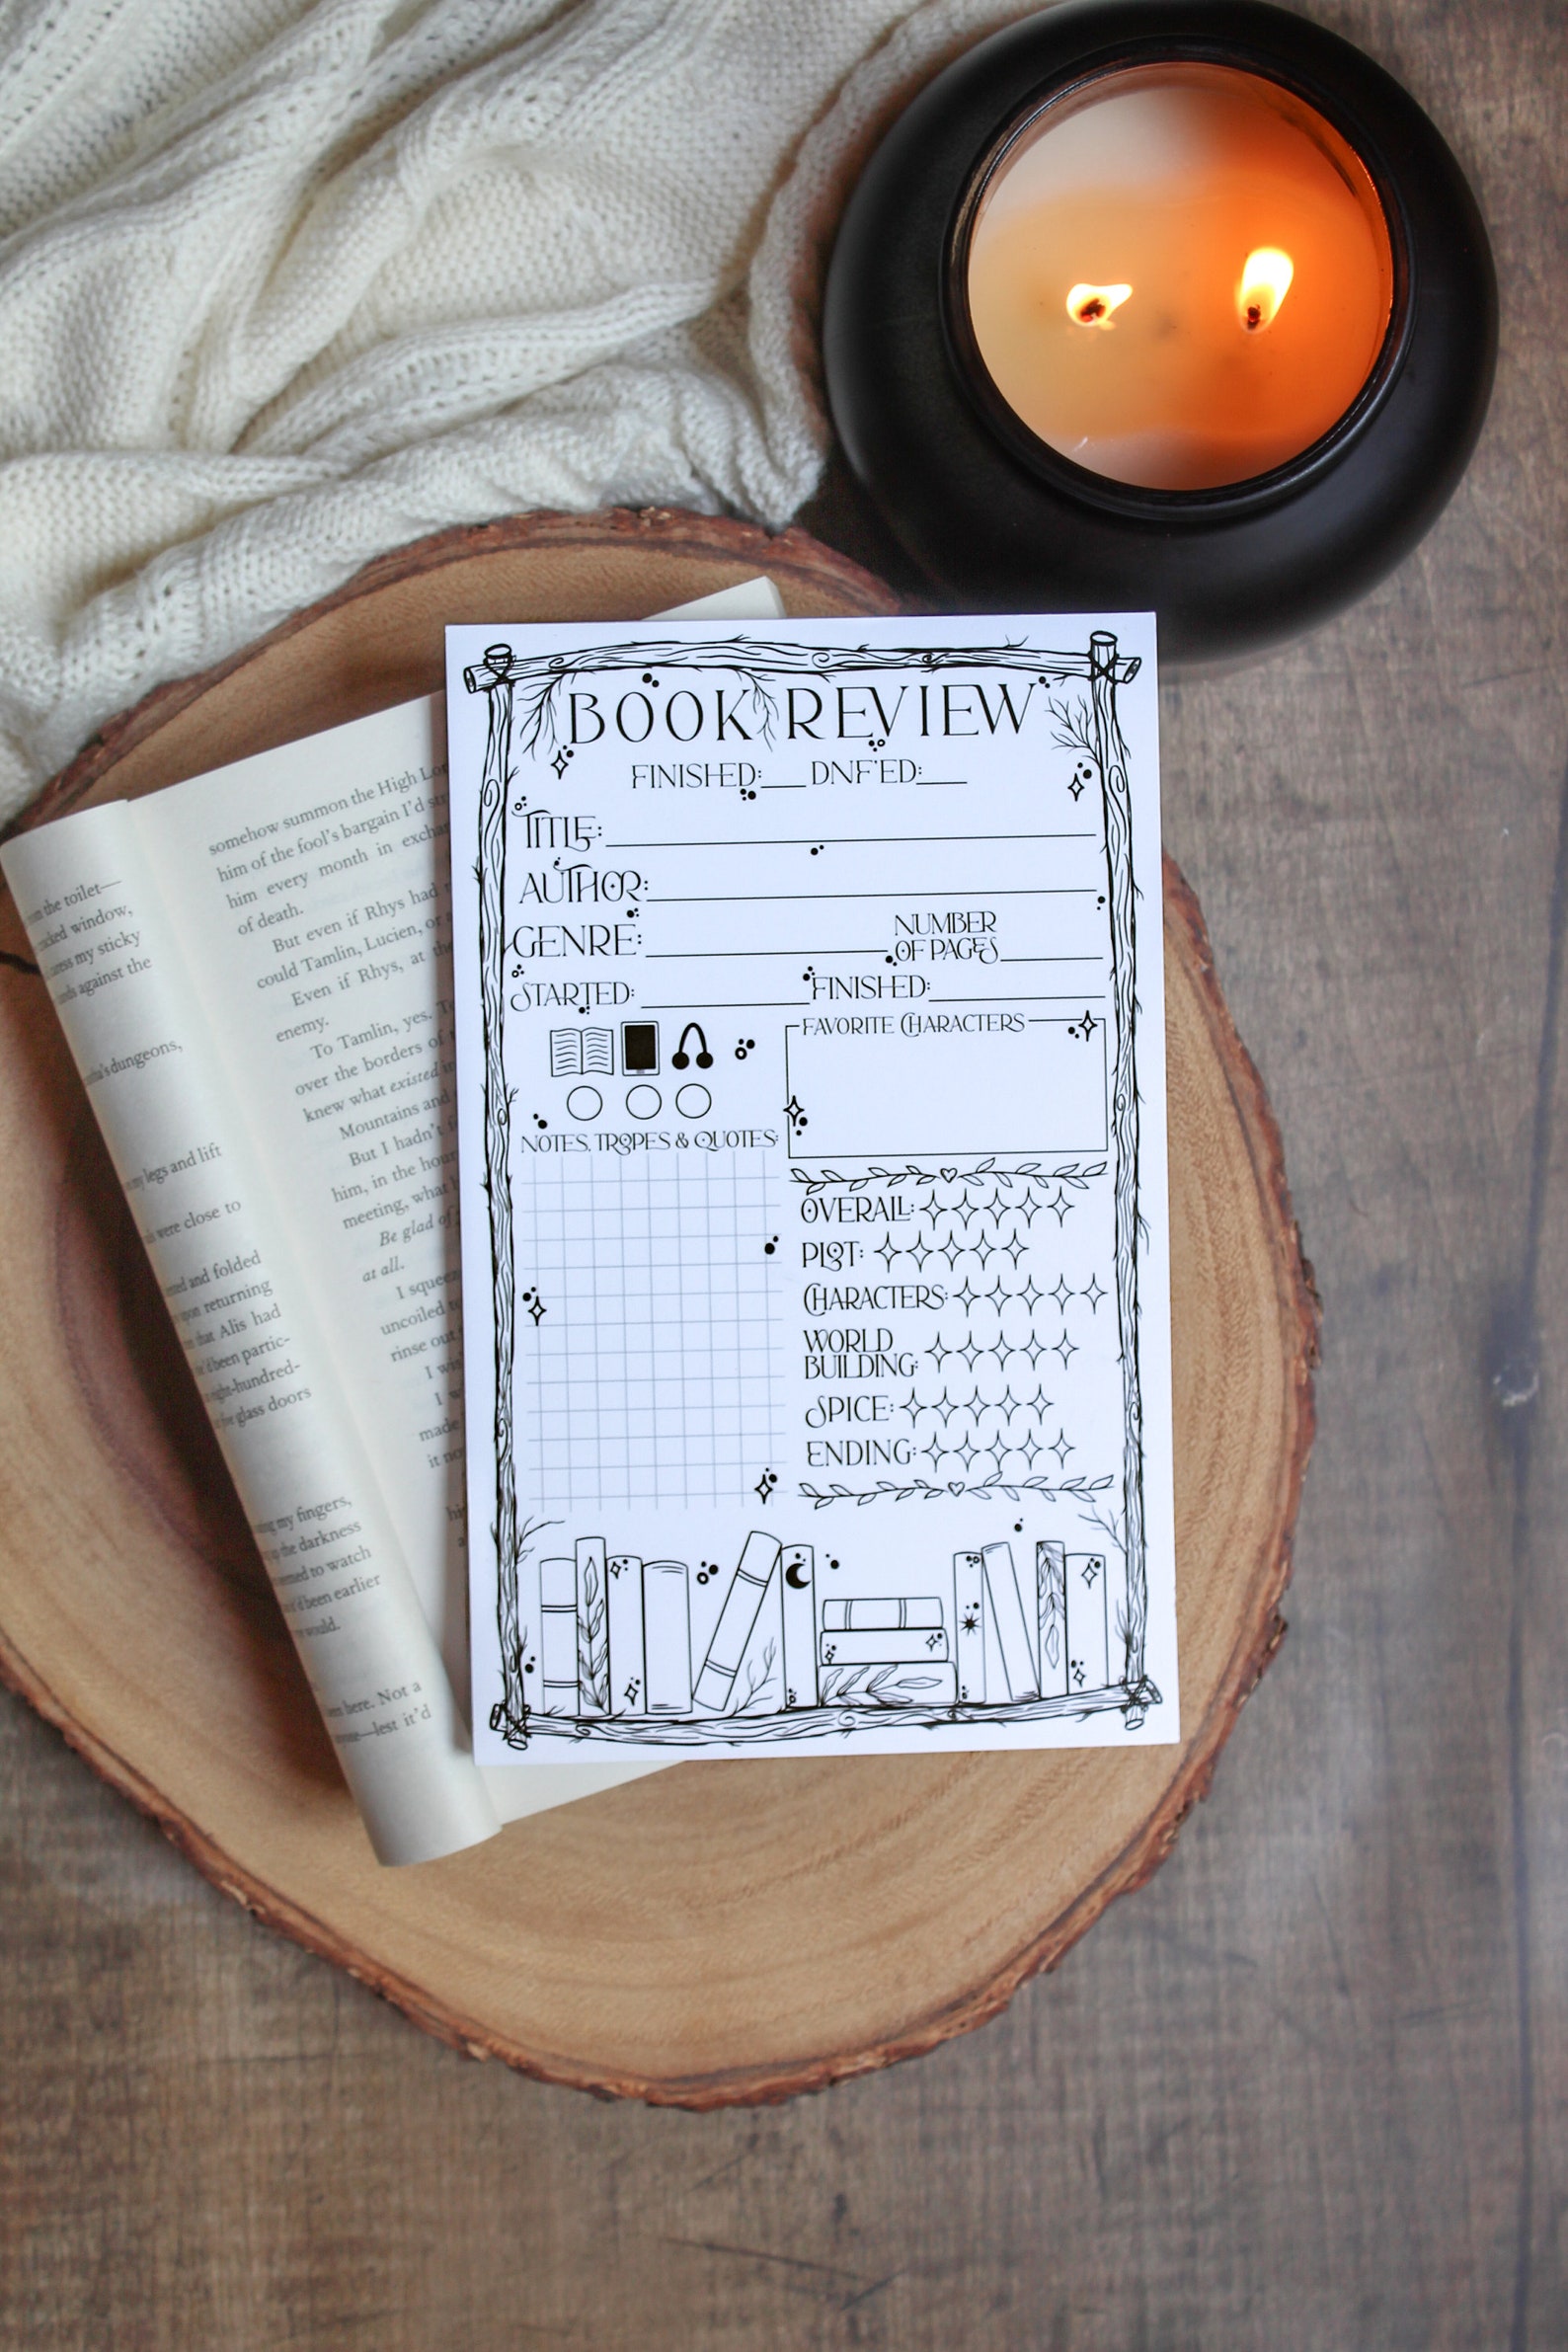 BOOK REVIEW
FINISHED:___ DNF'ED:___
TITLE:
AUTHOR:
GENRE:
NUMBER
OF PAGES
STARTED: FINISHED:
FAVORITE CHARACTERS
NOTES, TROPES & QUOTES:
OVERALL:
PLOT:
CHARACTERS:
WORLD
BUILDING:
SPICE:
ENDING:
somehow summon the High
him of the fool's bargain I'd
him every month in
of death.
But even if Rhys had
could Tamlin, Lucien, or
Even if Rhys, at
enemy.
To Tamlin, yes.
over the borders of
knew what existed
Mountains and
But I hadn't
him, in the
meeting, what
Be glad of
at all.
I
uncoiled
rinse out
I
I
made
it
the toilet—
window,
my sticky
against the
dungeons,
my legs and lift
were close to
and folded
returning
that Alis had
been partic-
eight-hundred-
glass doors
my fingers,
the darkness
to watch
been earlier
would.
here. Not a
lest it'd